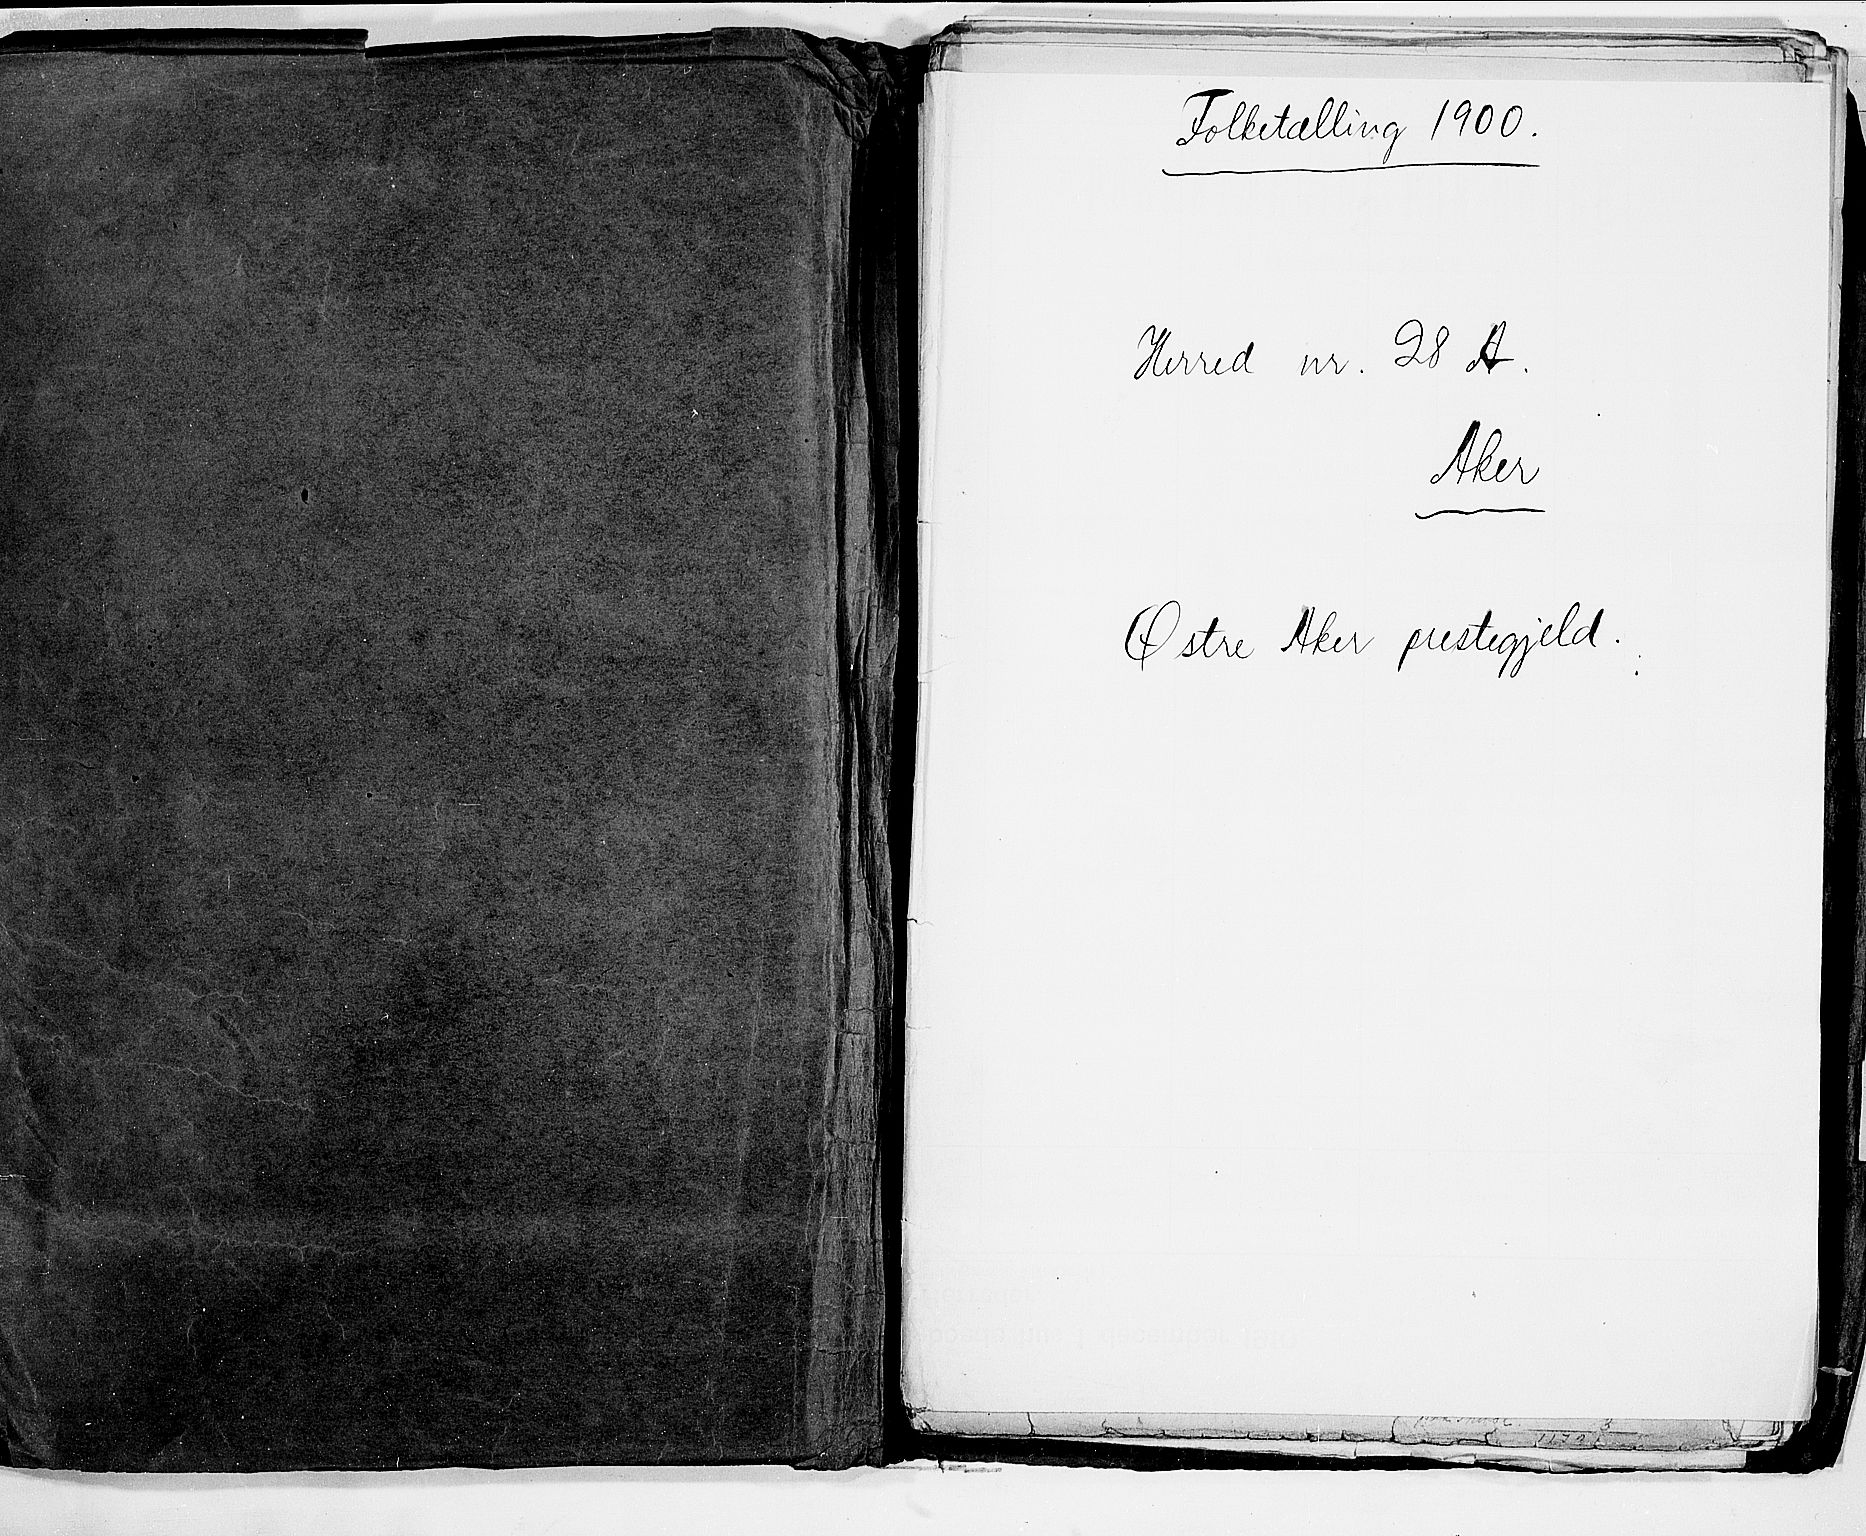 Folketælling 1900.
Herred nr. 28 A.
Aker
Østre Aker prestegjeld.